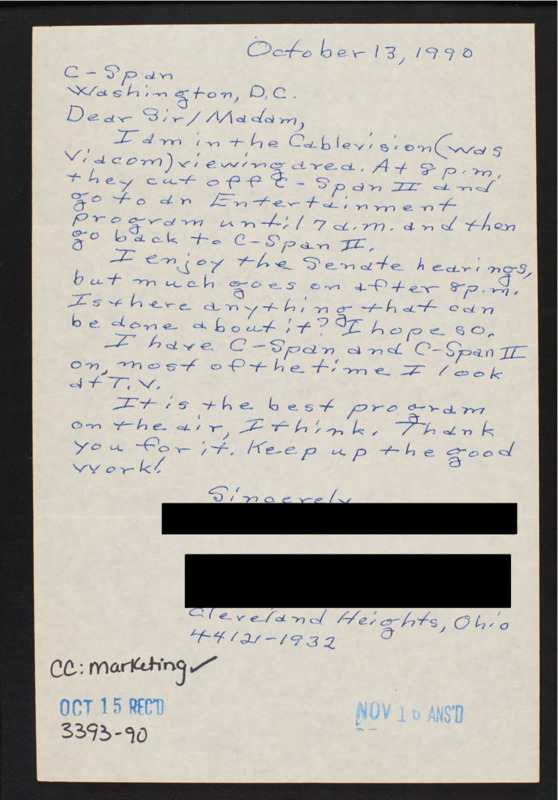 October 13, 1990
C-Span
Washington, D.C.
Dear Sir/Madam,
I am in the Cablevision (was
Viacom) viewing area. At 8 p.m.
they cut off C-Span II and
go to an Entertainment
program until 7 a.m. and then
go back to C-Span II.
I enjoy the Senate hearings,
but much goes on after 8 p.m.
Is there anything that can
be done about it? I hope so.
I have C-Span and C-Span II
on, most of the time I look
at T.V.
It is the best program
on the air, I think. Thank
you for it. Keep up the good
work!
Sincerely
Cleveland Heights, Ohio
44121-1932
CC: marketing ✓
OCT 15 REC'D
3393-90
NOV 16 ANS'D